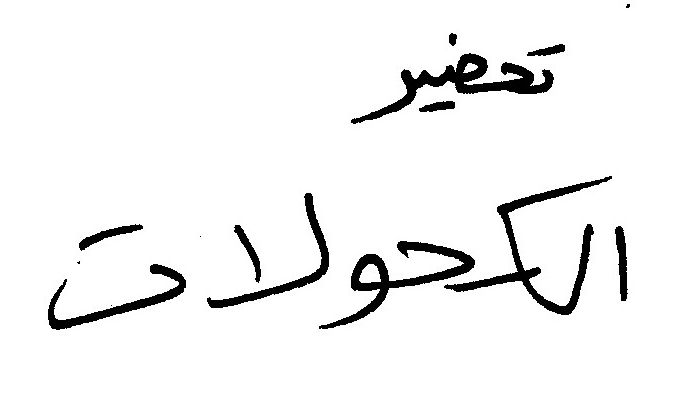 تحضير
الكحولات